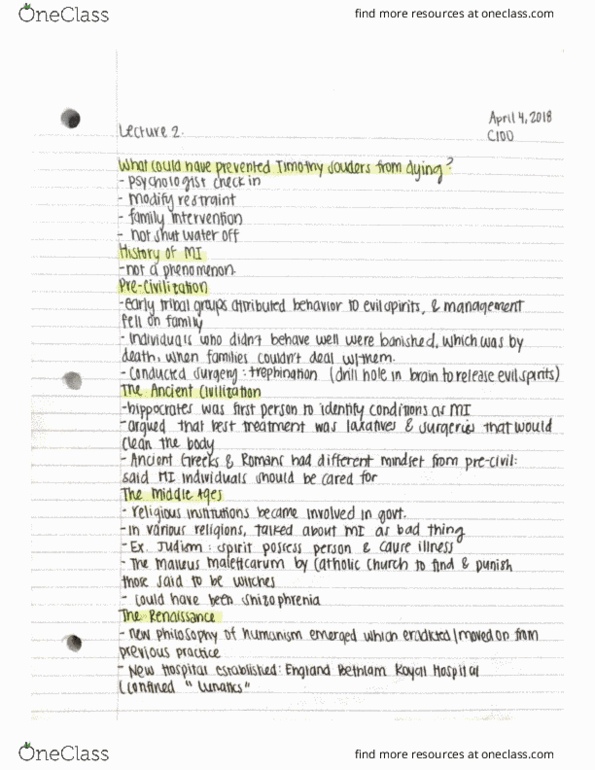 OneClass
find more resources at oneclass.com
April 4, 2018
Lecture 2.
C100
What could have prevented Timothy Souders from dying?
- psychologist check in
- modify restraint
- family intervention
- not shut water off
History of MI
-not a phenomenon.
Pre-Civilization
-early tribal groups attributed behavior to evil spirits, & management
fell on family
- Individuals who didn't behave well were banished, which was by
death, when families couldn't deal w/them.
- Conducted surgery: trephination (drill hole in brain to release evil spirits)
The Ancient Civilization
-hippocrates was first person to identify conditions as MI
-argued that best treatment was laxatives & surgeries that would
clean the body
- Ancient Greeks & Romans had different mindset from pre-civil:
said MI individuals should be cared for
The Middle Ages
- religious institutions became involved in govt.
-In various religions, talked about MI as bad thing
- Ex. Judism: spirit possess person & cause illness
- The Malleus maleficarum by Catholic Church to find & punish
those said to be witches
- could have been shizophrenia
The Renaissance
- new philosophy of humanism emerged which eradicted/moved on from
previous practice
- New hospital established: England Bethlam Royal Hospital
(confined "lunatics"
OneClass
find more resources at oneclass.com